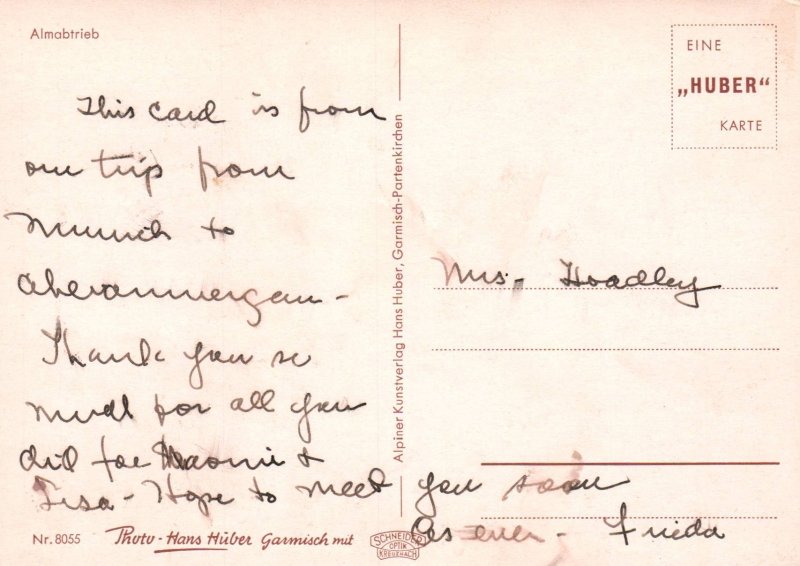 Almabtrieb
This card is from
our trip from
Munich to
Oberammergau -
Thank you so
much for all you
did for Naomi &
Lisa - Hope to meet you soon
As ever - Frieda
Mrs. Hoadley
EINE
„HUBER“
KARTE
Alpiner Kunstverlag Hans Huber, Garmisch-Partenkirchen
Nr. 8055 Photo - Hans Huber Garmisch mit
SCHNEIDER
OPTIK
KREUZNACH